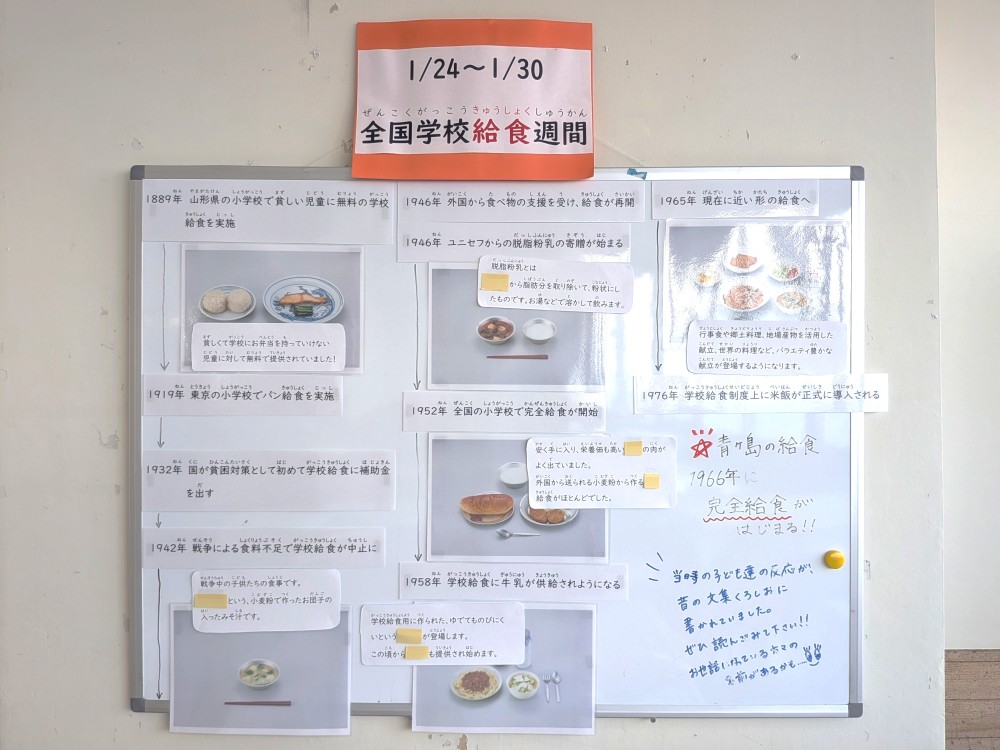 1/24～1/30
ぜんこくがっこうきゅうしょくしゅうかん
全国学校給食週間
1889年 山形県の小学校で貧しい児童に無料の学校
給食を実施
貧しくて学校にお弁当を持っていけない
児童に対して無料で提供されていました!
1919年 東京の小学校でパン給食を実施
1932年 国が貧困対策として初めて学校給食に補助金
を出す
1942年 戦争による食料不足で学校給食が中止に
戦争中の子供たちの食事です。
という、小麦粉で作ったお団子の
入ったみそ汁です。
1946年 外国から食べ物の支援を受け、給食が再開
1946年 ユニセフからの脱脂粉乳の寄贈が始まる
脱脂粉乳とは
から脂肪分を取り除いて、粉状にし
たものです。お湯などで溶かして飲みます。
1952年 全国の小学校で完全給食が開始
安く手に入り、栄養価も高い の肉が
よく出ていました。
外国から送られる小麦粉から作る
給食がほとんどでした。
1958年 学校給食に牛乳が供給されようになる
学校給食用に作られた、ゆでてものびにく
いという が登場します。
この頃から も提供され始めます。
1965年 現在に近い形の給食へ
行事食や郷土料理、地場産物を活用した
献立、世界の料理など、バラエティ豊かな
献立が登場するようになります。
1976年 学校給食制度上に米飯が正式に導入される
青ヶ島の給食
1966年に
完全給食が
はじまる!!
当時の子ども達の反応が、
昔の文集くろしおに
書かれていました。
ぜひ読んでみて下さい!!
お世話になっている方々の
名前があるかも…